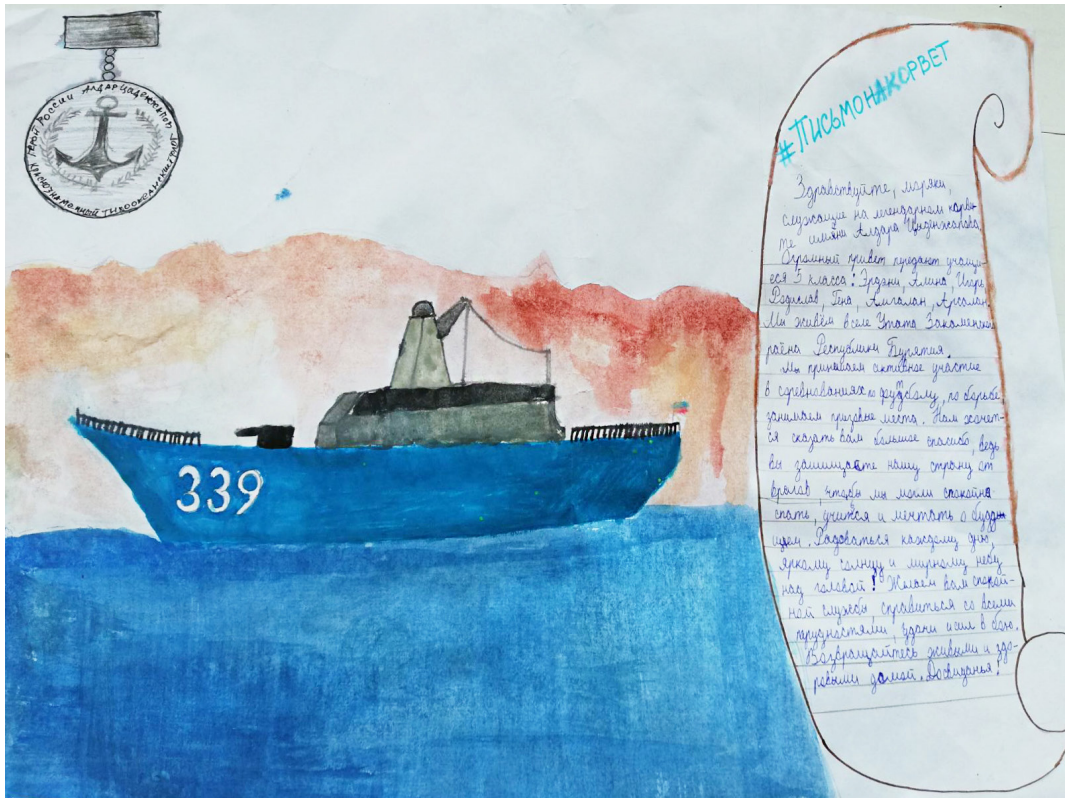 ГЕРОЙ РОССИИ АЛДАР ЦЫДЕНЖАПОВ
КРАСНОЗНАМЕННЫЙ ТИХООКЕАНСКИЙ ФЛОТ
339
#ПИСЬМОНАКОРВЕТ
Здравствуйте, моряки,
служащие на легендарном корве-
те имени Алдара Цыденжапова.
Огромный привет передают учащи-
еся 5 класса! Эрдэни, Алина, Игорь
Радислав, Гена, Амгалан, Арсалан.
Мы живём в селе Утата Закаменского
района Республики Бурятия.
Мы принимаем активное участие
в соревнованиях по футболу, по борьбе
занимаем призовые места. Нам хочет-
ся сказать вам большое спасибо, ведь
вы защищаете нашу страну от
врагов, чтобы мы могли спокойно
спать, учится и мечтать о будующем
Радоваться каждому дню,
яркому солнцу и мирному небу
над головой! Желаем вам спокой-
ной службы, справиться со всеми
трудностями, удачи и сил в бою.
Возвращайтесь живыми и здо-
ровыми домой. Досвиданья!